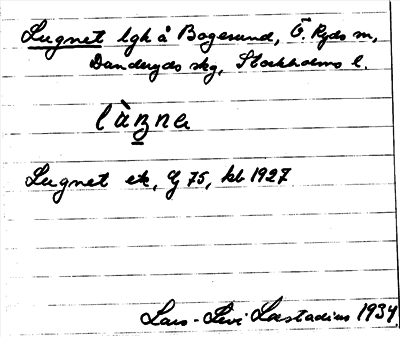 Lugnet lgh å Bogesund, Ö. Ryds sn,
Danderyds skg, Stockholms l.
Lugnet ek, G 75, kbl 1927
Lars-Levi Læstadius 1934